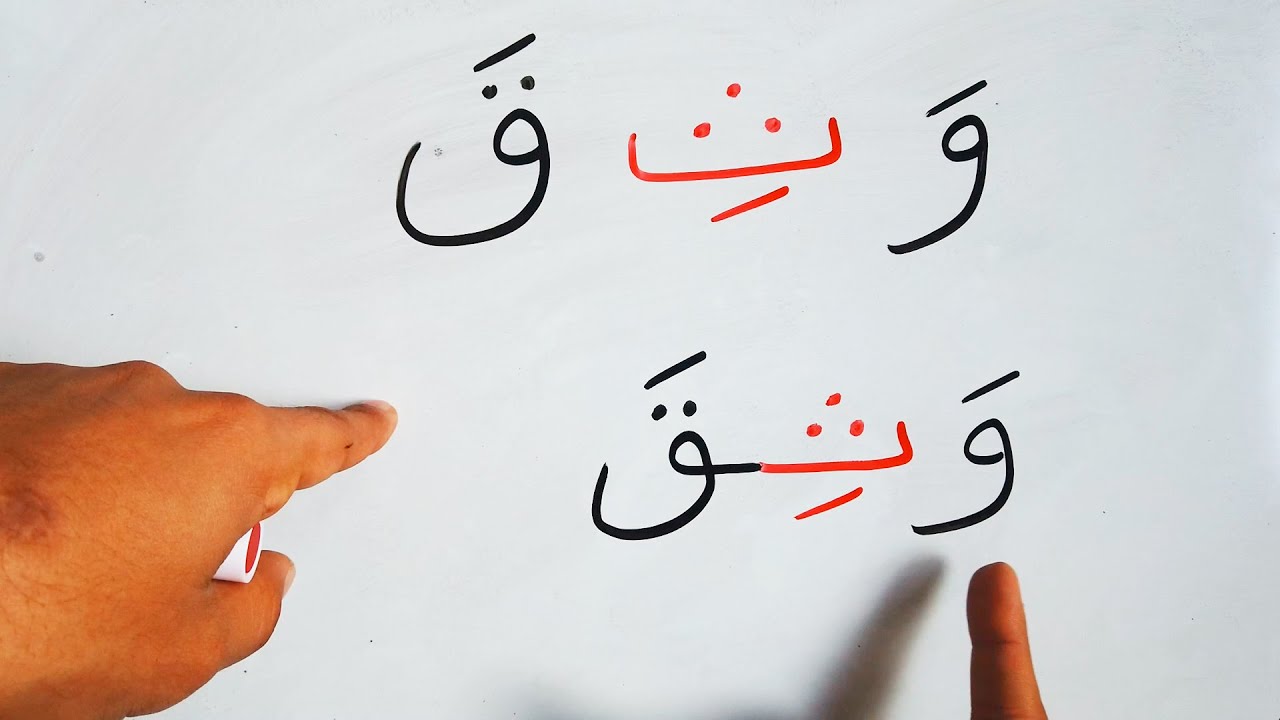 وَ ثِ قَ
وَثِقَ